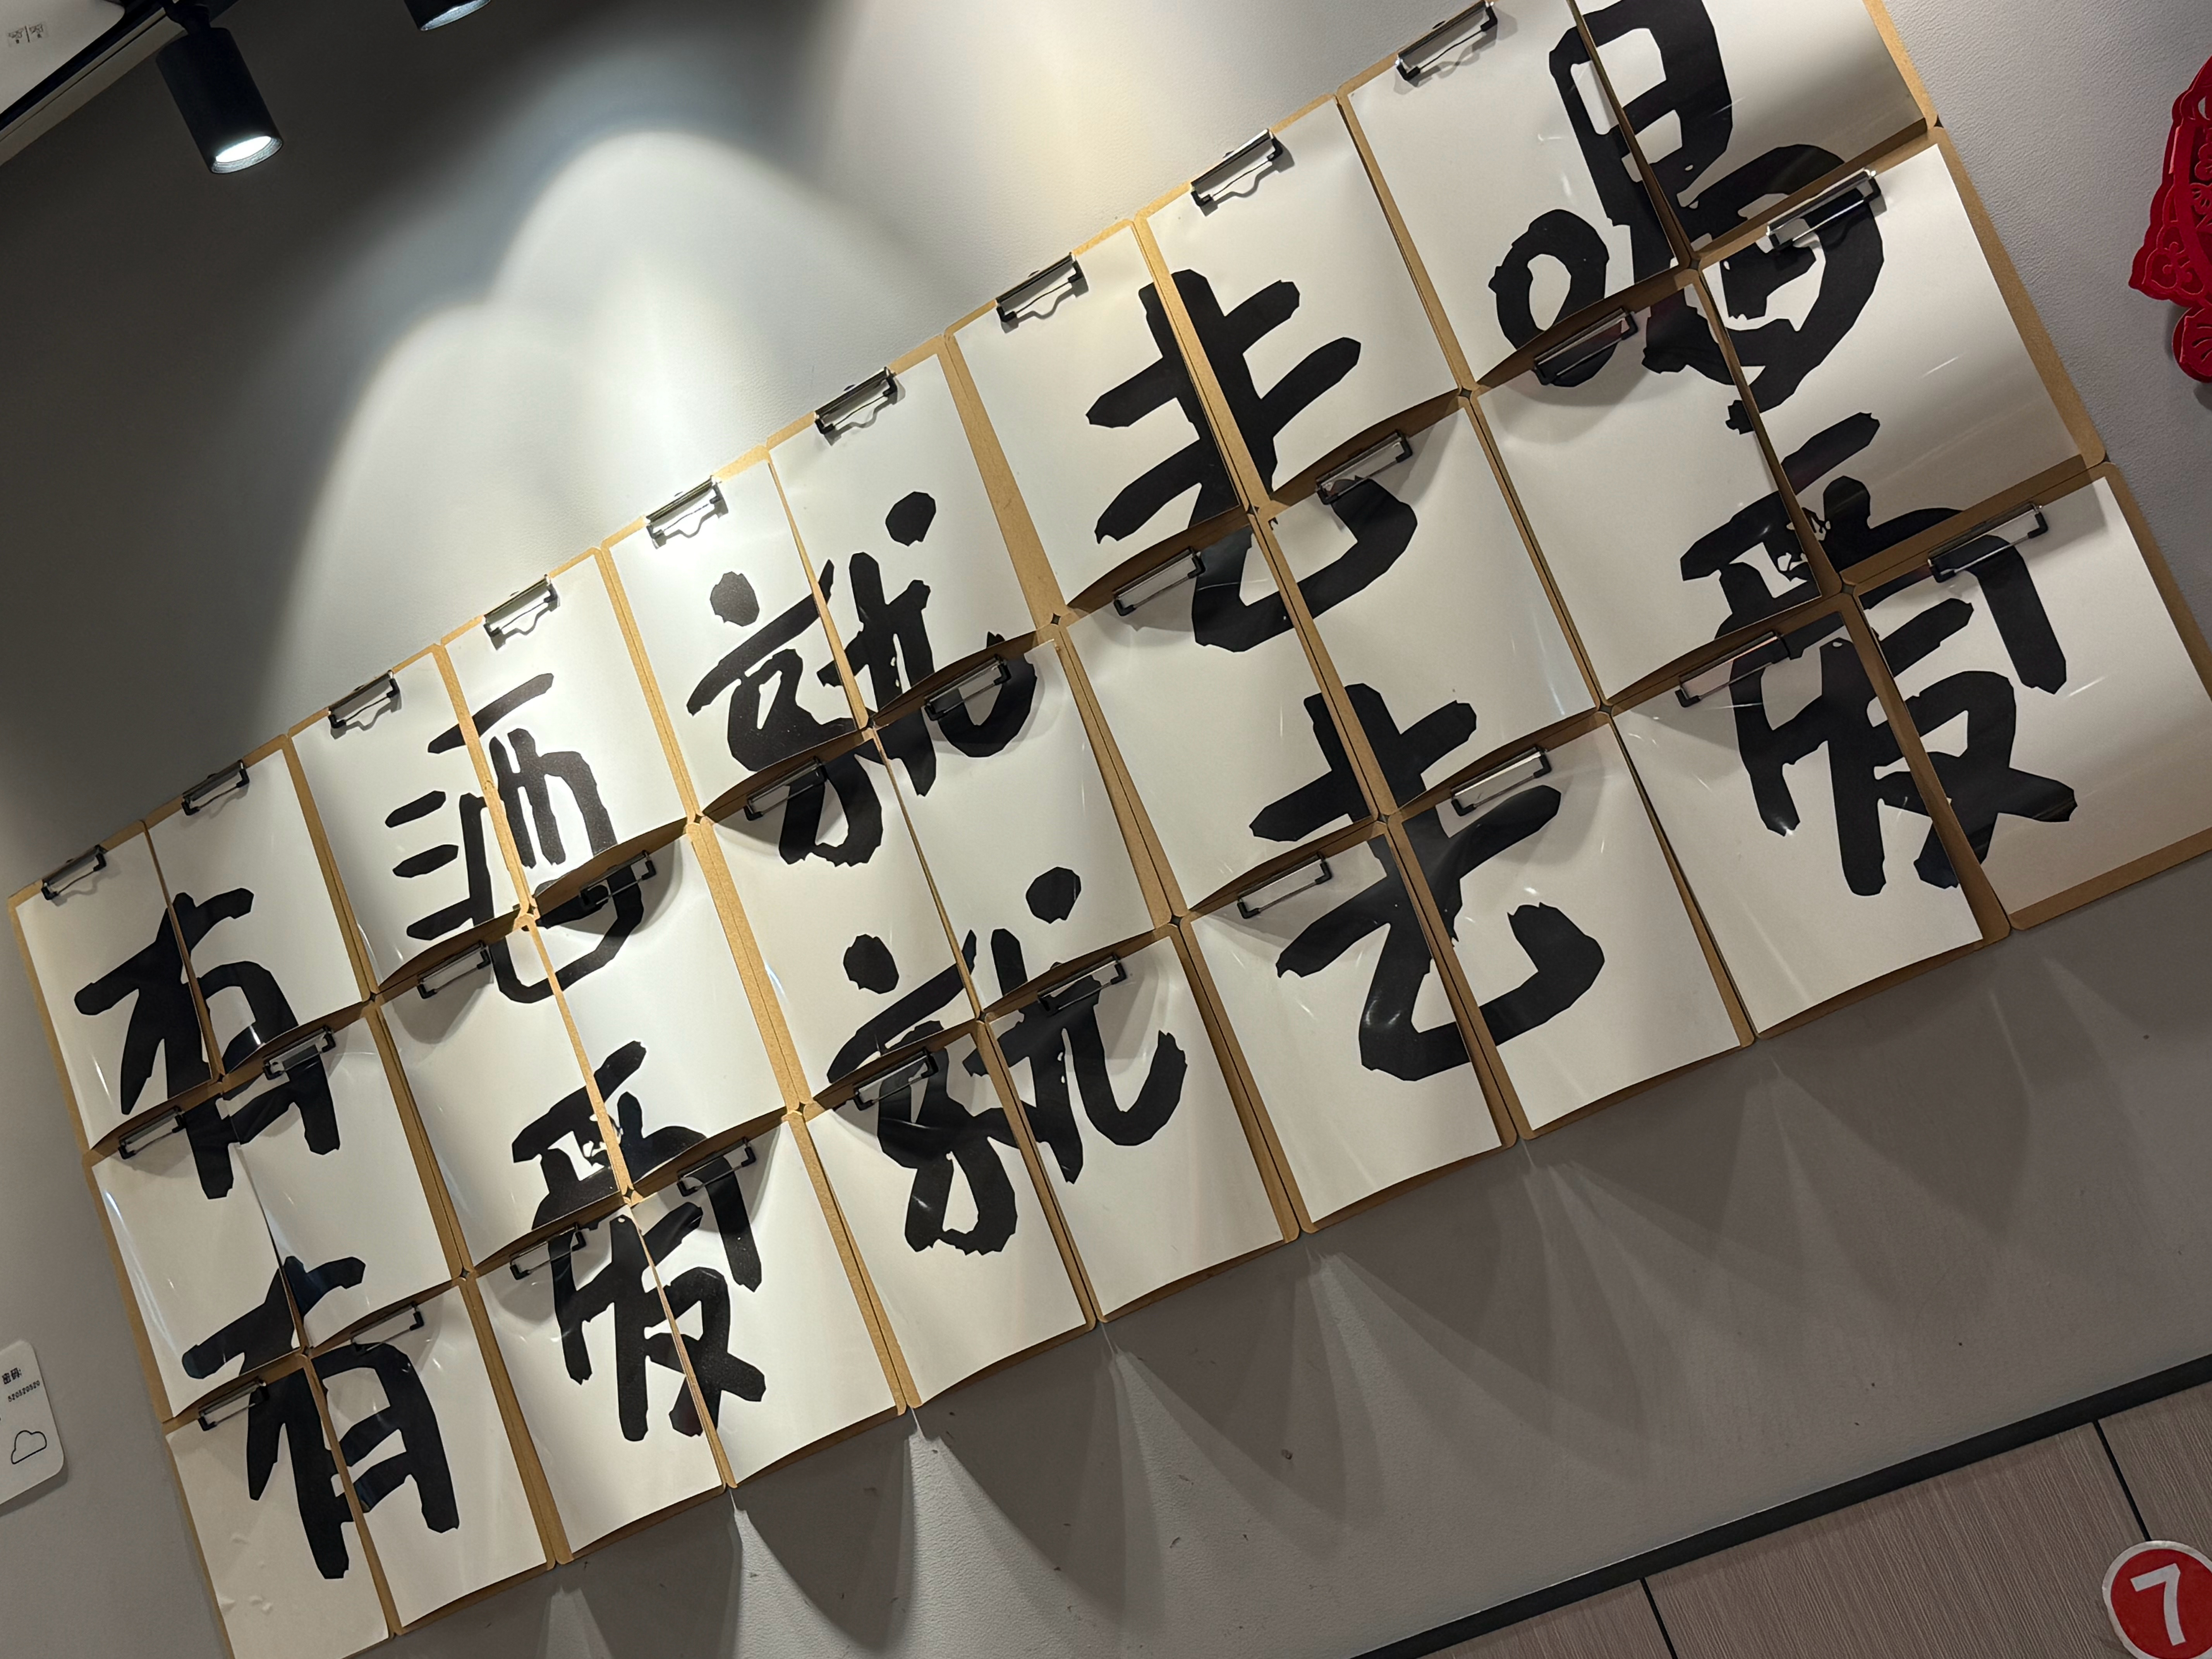 有酒就去喝
有爱就去爱
密码:
520520520
7